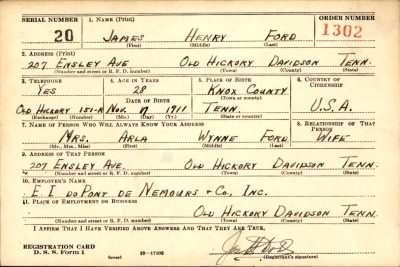 SERIAL NUMBER 1. NAME (Print) ORDER NUMBER
20 JAMES HENRY FORD 1302
(First) (Middle) (Last)
2. ADDRESS (Print)
207 ENSLEY AVE OLD HICKORY DAVIDSON TENN.
(Number and street or R. F. D. number) (Town) (County) (State)
3. TELEPHONE 4. AGE IN YEARS 5. PLACE OF BIRTH 6. COUNTRY OF CITIZENSHIP
YES 28 KNOX COUNTY
DATE OF BIRTH (Town or county)
OLD HICKORY 151-R NOV. 17 1911 TENN. U.S.A.
(Exchange) (Number) (Mo.) (Day) (Yr.) (State or country)
7. NAME OF PERSON WHO WILL ALWAYS KNOW YOUR ADDRESS 8. RELATIONSHIP OF THAT PERSON
MRS. ARLA WYNNE FORD WIFE
(Mr., Mrs., Miss) (First) (Middle) (Last)
9. ADDRESS OF THAT PERSON
207 ENSLEY AVE. OLD HICKORY DAVIDSON TENN.
(Number and street or R. F. D. number) (Town) (County) (State)
10. EMPLOYER'S NAME
E I DUPONT DE NEMOURS & CO, INC.
11. PLACE OF EMPLOYMENT OR BUSINESS
OLD HICKORY DAVIDSON TENN.
(Number and street or R. F. D. number) (Town) (County) (State)
I AFFIRM THAT I HAVE VERIFIED ABOVE ANSWERS AND THAT THEY ARE TRUE.
REGISTRATION CARD
D. S. S. Form 1 (over) 16—17105 (Registrant's signature)